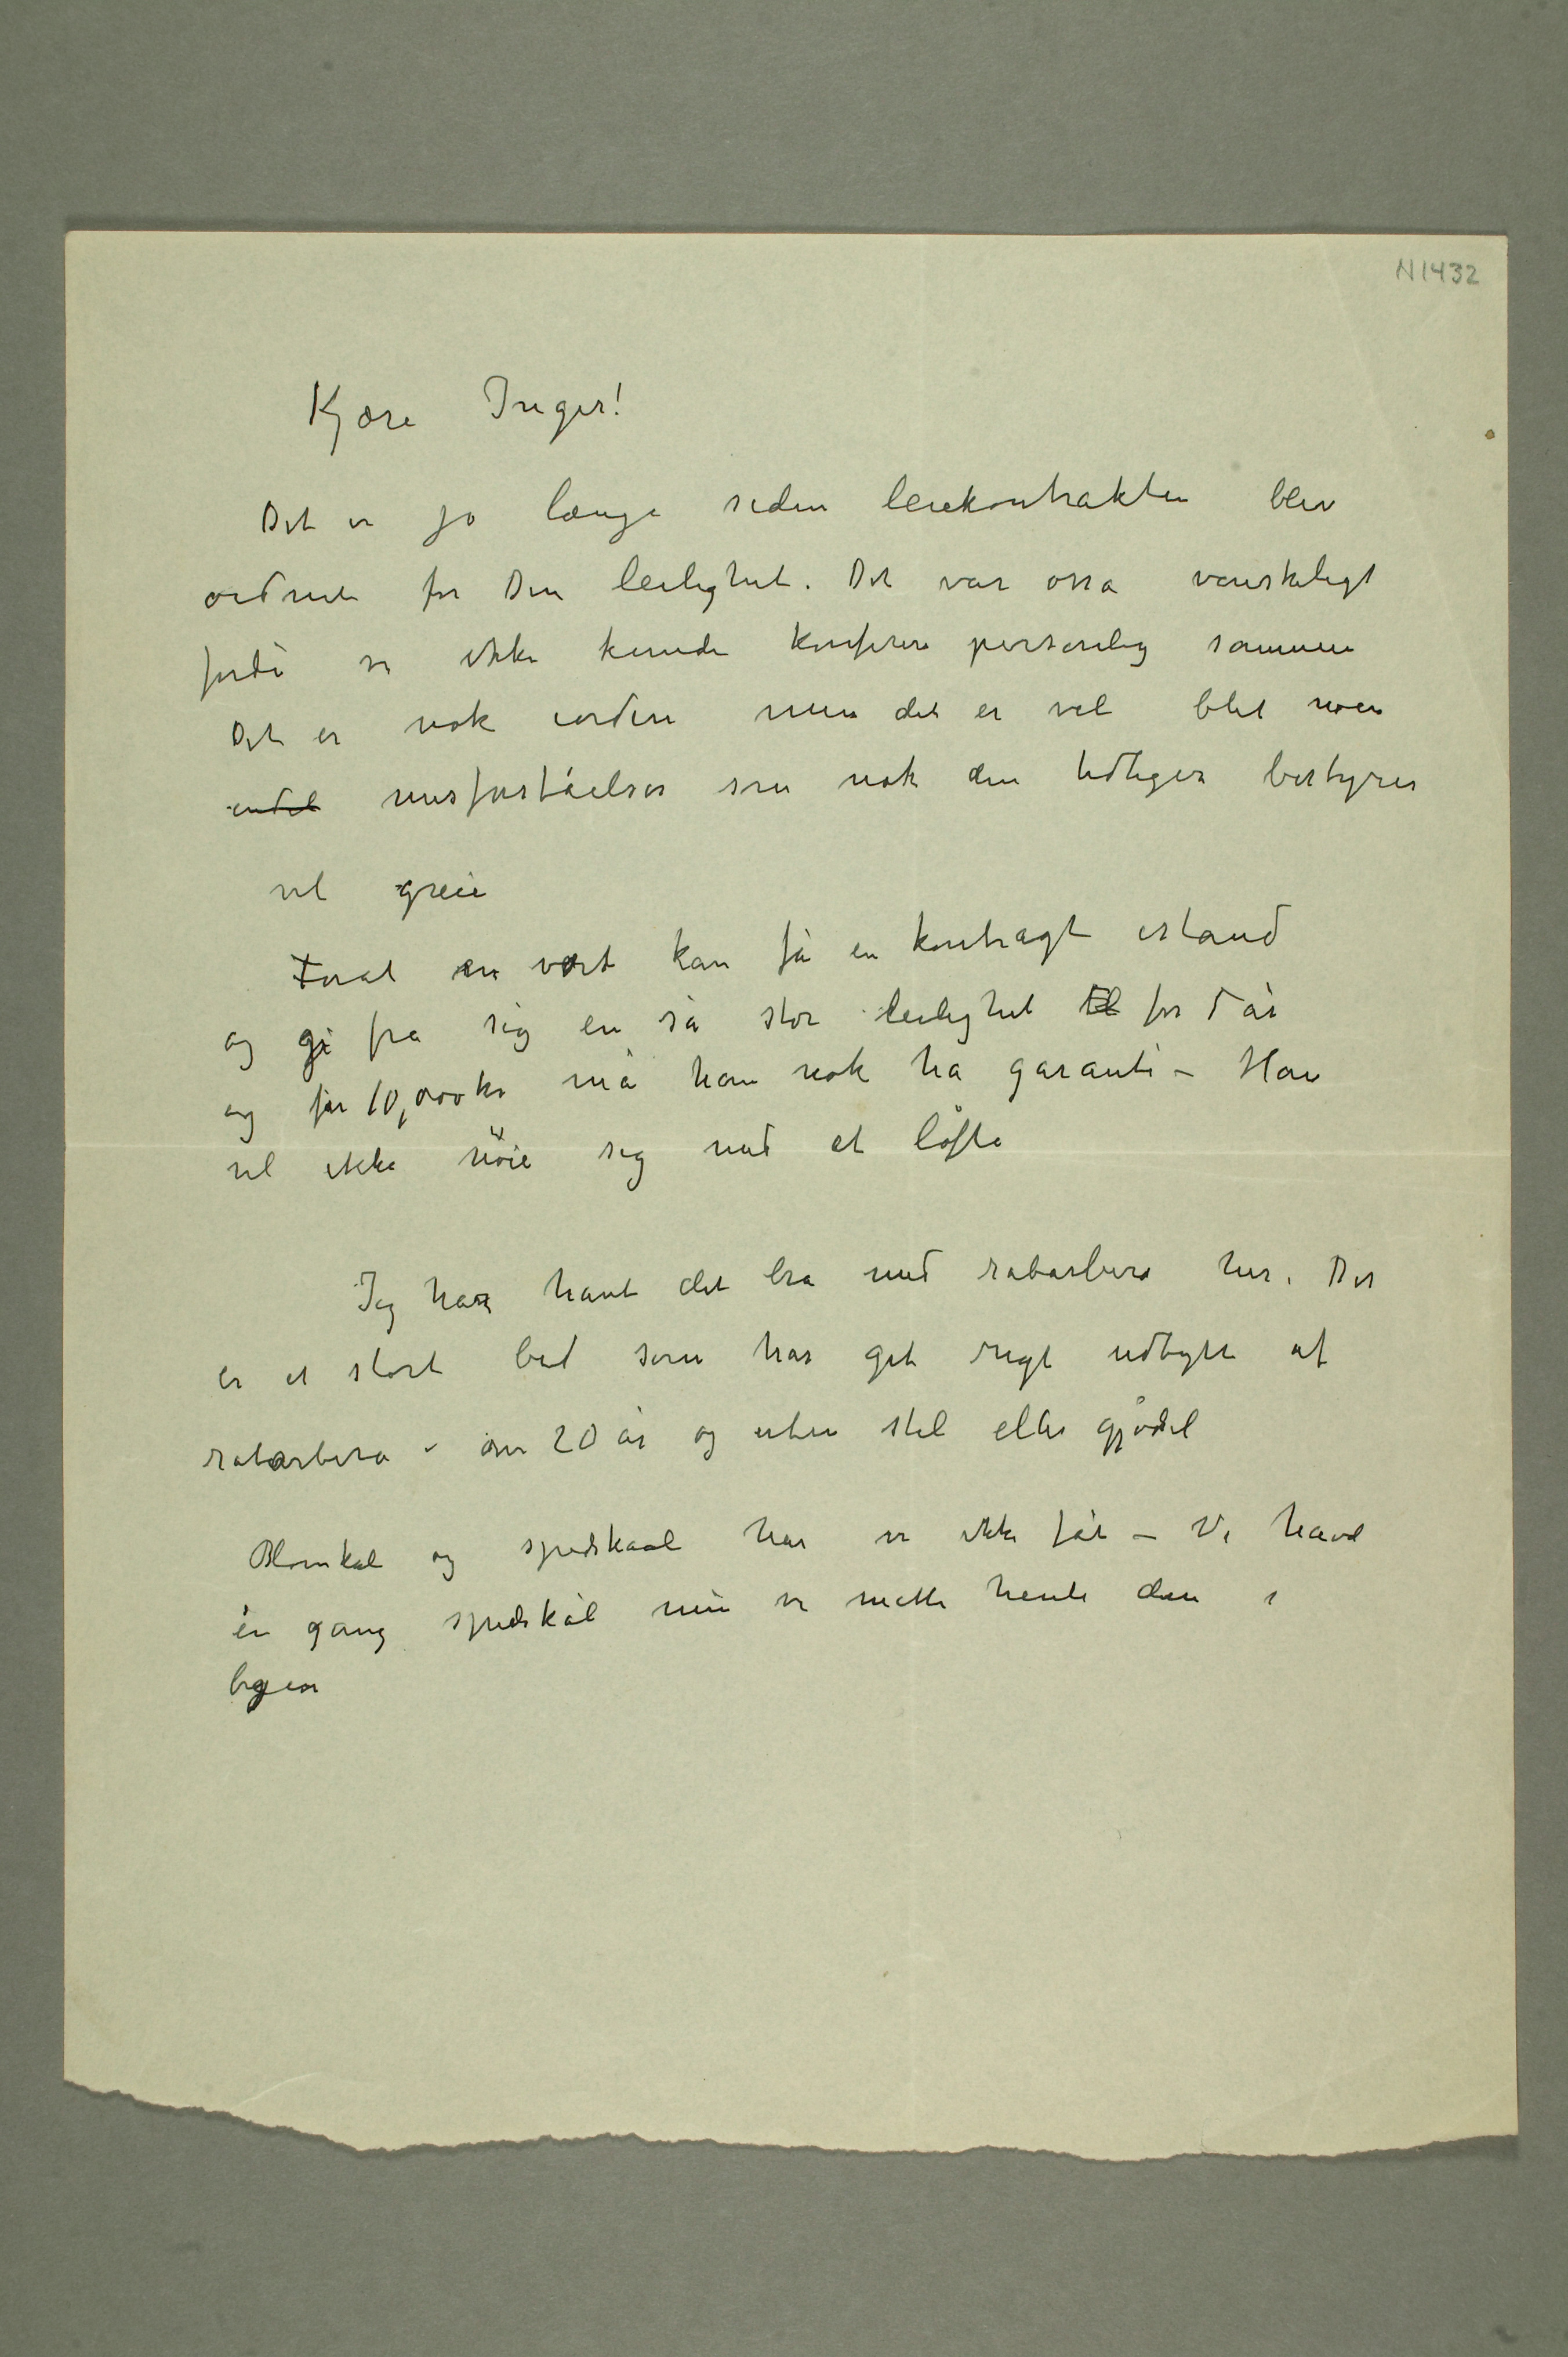 N1432
Kjære Inger!
Det er jo længe siden leiekontrakten blev
ordnet for Din leilighet. Det var osså vanskeligt
fordi vi ikke kunde konferere personlig sammen
Det er nok iorden men det er vel blet noen
endel misforståelser som nok den tidligere bestyrer
vil greie
Forat en vært kan få en kontragt istand
og gi fra sig en så stor leilighet til for 5 år
og for 10,000 kr må han nok ha garanti – Han
vil ikke nöie sig med et löfte
Jeg har havt det bra med rabarbera her. Der
er et stort bed som har get rigt udbytte af
rabarbera i over 20 år og uten stel eller gjödsel
Blomkål og spedskaal har vi ikke fåt – Vi havde
én gang spedskål men vi måtte hente den i
byen